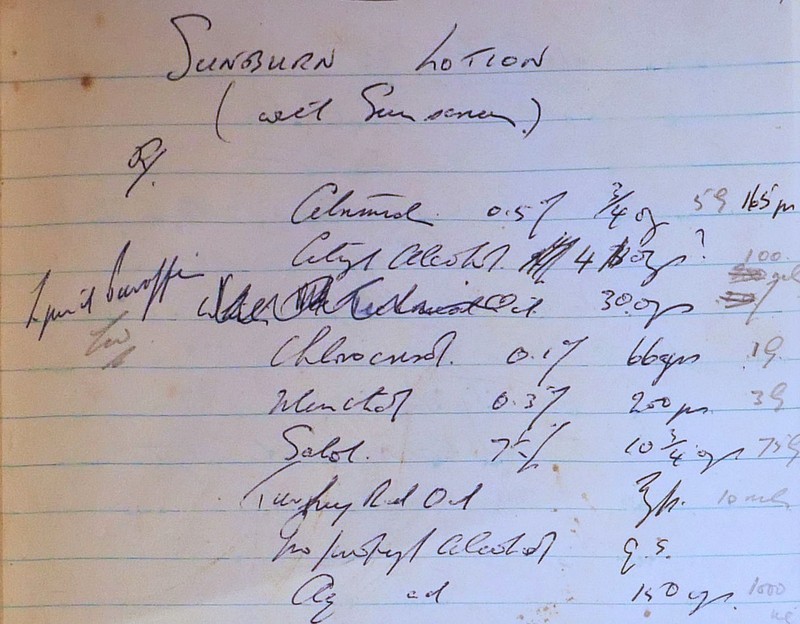 SUNBURN LOTION
(with Sunscreen.)
Rx
Cetrimide 0.5% 3/4 oz 5G 165 grs
Cetyl Alcohol. 4 ozs? 100.
Liquid Paraffin Oil 30 ozs
Chlorocresol. 0.1% 66 grs 1G
Menthol 0.3% 200 grs 3G
Salol. 7½% 10 3/4 ozs 75G
Turkey Red Oil 10 mls
Isopropyl Alcohol q.s.
Aq ad 150 ozs. 1000